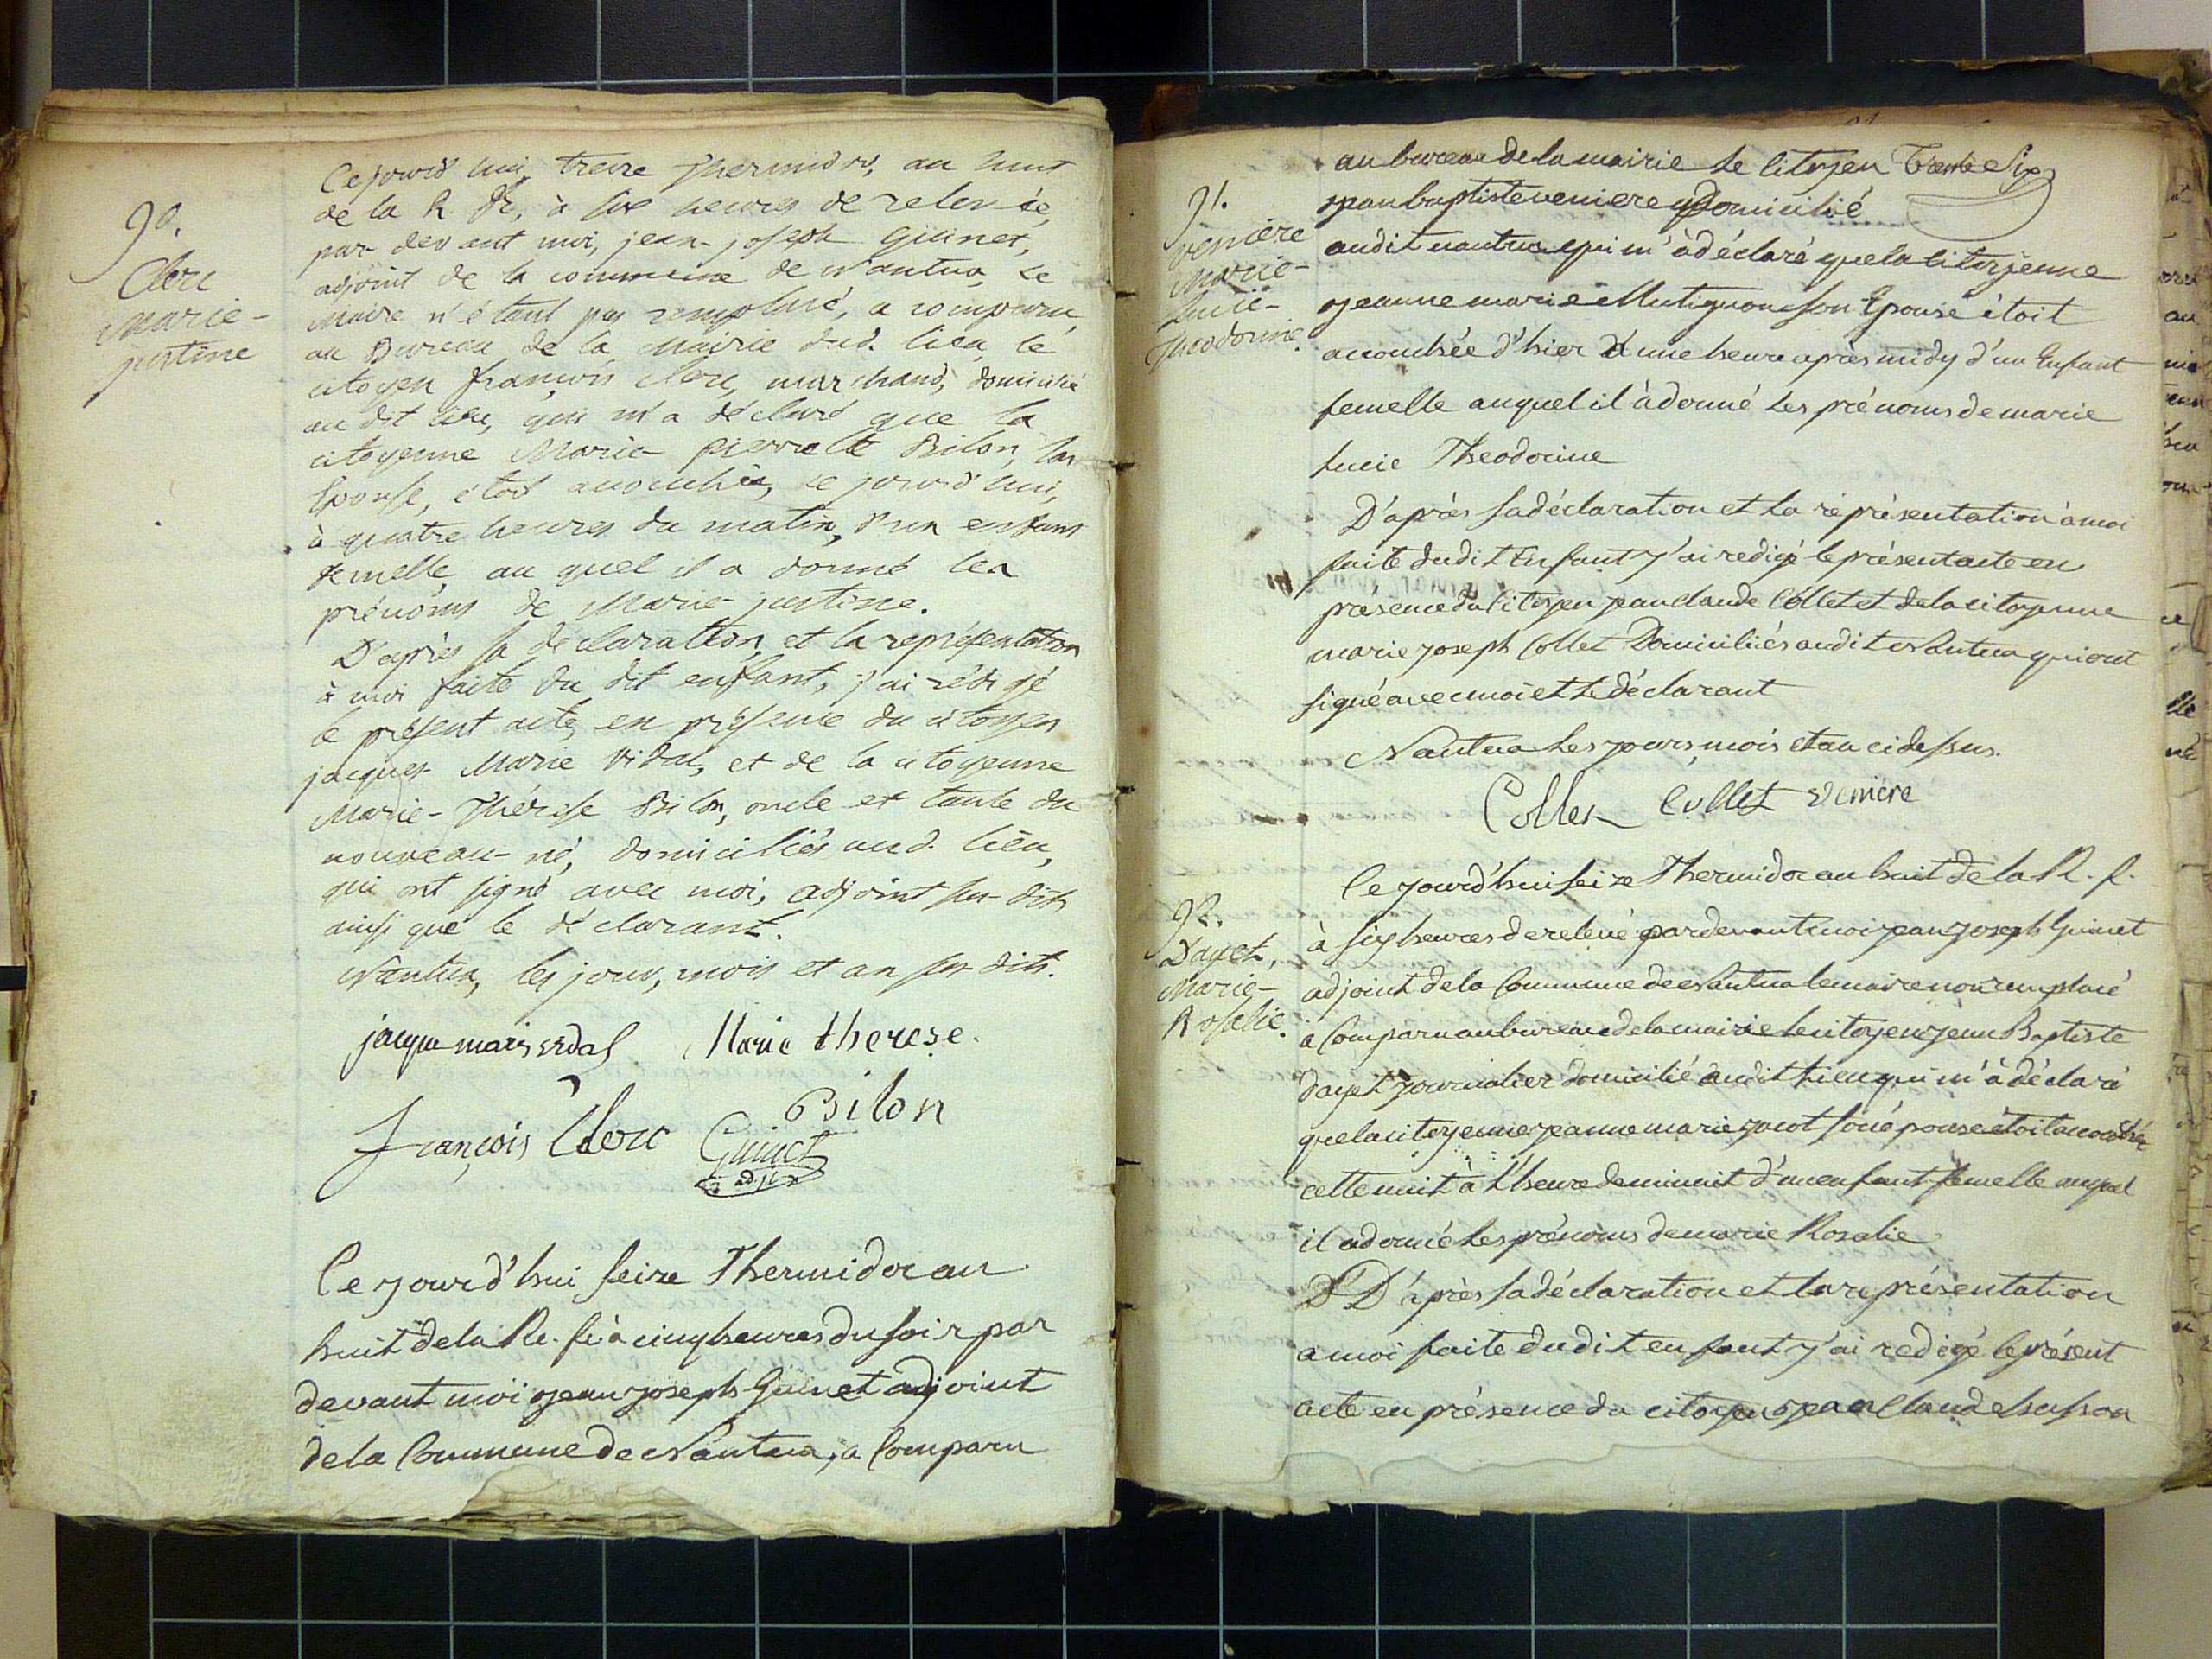 90.
Clerc
Marie-
justine
Ce jourd'hui, treize Thermidor, an huit
de la R. fr, à six heures de relevée,
par-devant moi, jean-joseph Guinet,
adjoint de la commune de Nantua, le
Maire n'étant pas remplacé, a comparu
au Bureau de la Mairie dud. lieu, le
citoyen françois Clerc, marchand, domicilié
au dit lieu, qui m'a déclaré que la
citoyenne Marie pierrette Bilon, son
Epouse, étoit accouchée, ce jourd'hui,
à quatre heures du matin, d'un enfant
femelle, au quel il a donné les
prénoms de Marie-justine.
D'après sa déclaration, et la représentation
à moi faite du dit enfant, j'ai rédigé
le présent acte, en présence du citoyen
jacques Marie Vidal, et de la citoyenne
Marie-Thérèse Bilon, oncle et tante du
nouveau-né, domiciliés aud. lieu,
qui ont signé avec moi, adjoint sus-dit,
ainsi que le déclarant.
Nantua, les jour, mois et an sus dits.
jacque marie vidal Marie therese.
Bilon
françois Clerc Guinet
adjt
Ce jourd'hui seize Thermidor an
huit de la Re. fr. à cinq heures du soir par
devant moi jean joseph Guinet adjoint
de la Commune de Nantua, a Comparu
au bureau de la mairie le Citoyen Trente Six
91.
Venière
Marie-
Lucie-
Theodorine.
jean baptiste veniere Domicilié
audit nantua qui m'à déclaré que la Citoyenne
jeanne marie Mutignon son Epouse étoit
accouchée d'hier à une heure après midy d'un Enfant
femelle auquel il à donné Les prénoms de marie
Lucie Theodorine
D'après sa déclaration et La représentation à moi
faite dudit Enfant j'ai redigé le présent acte en
présence du Citoyen jean claude Collet et de la citoyenne
marie joseph Collet Domiciliés audit Nantua qui ont
signé avec moi et Le déclarant
Nantua Les jours, mois et an ci dessus.
Collet Collet veniere
92.
Dayet,
Marie-
Rosalie.
Ce jourd'hui seize Thermidor an huit de la R. f.
à six heures de relevé pardevant moi jean joseph Guinet
adjoint de la Commune de Nantua le maire non remplacé
à Comparu au bureau de la mairie Le citoyen jean Baptiste
dayet journalier domicilié audit Lieu qui m'à déclaré
que la citoyenne jeanne marie jacot son épouse étoit accouchée
cette nuit à l'heure de minuit d'un enfant femelle auquel
il a donné Les prénoms de marie Rosalie
D D'après sa déclaration et la représentation
a moi faite dudit enfant j'ai redigé le présent
acte en présence du citoyen jean Claude